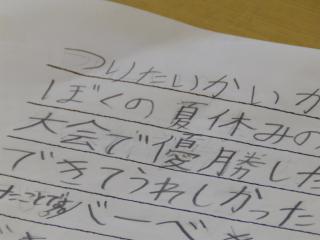 つりたいかいが
ぼくの夏休みの
大会で優勝した
できてうれしかった
たことです バーベキ